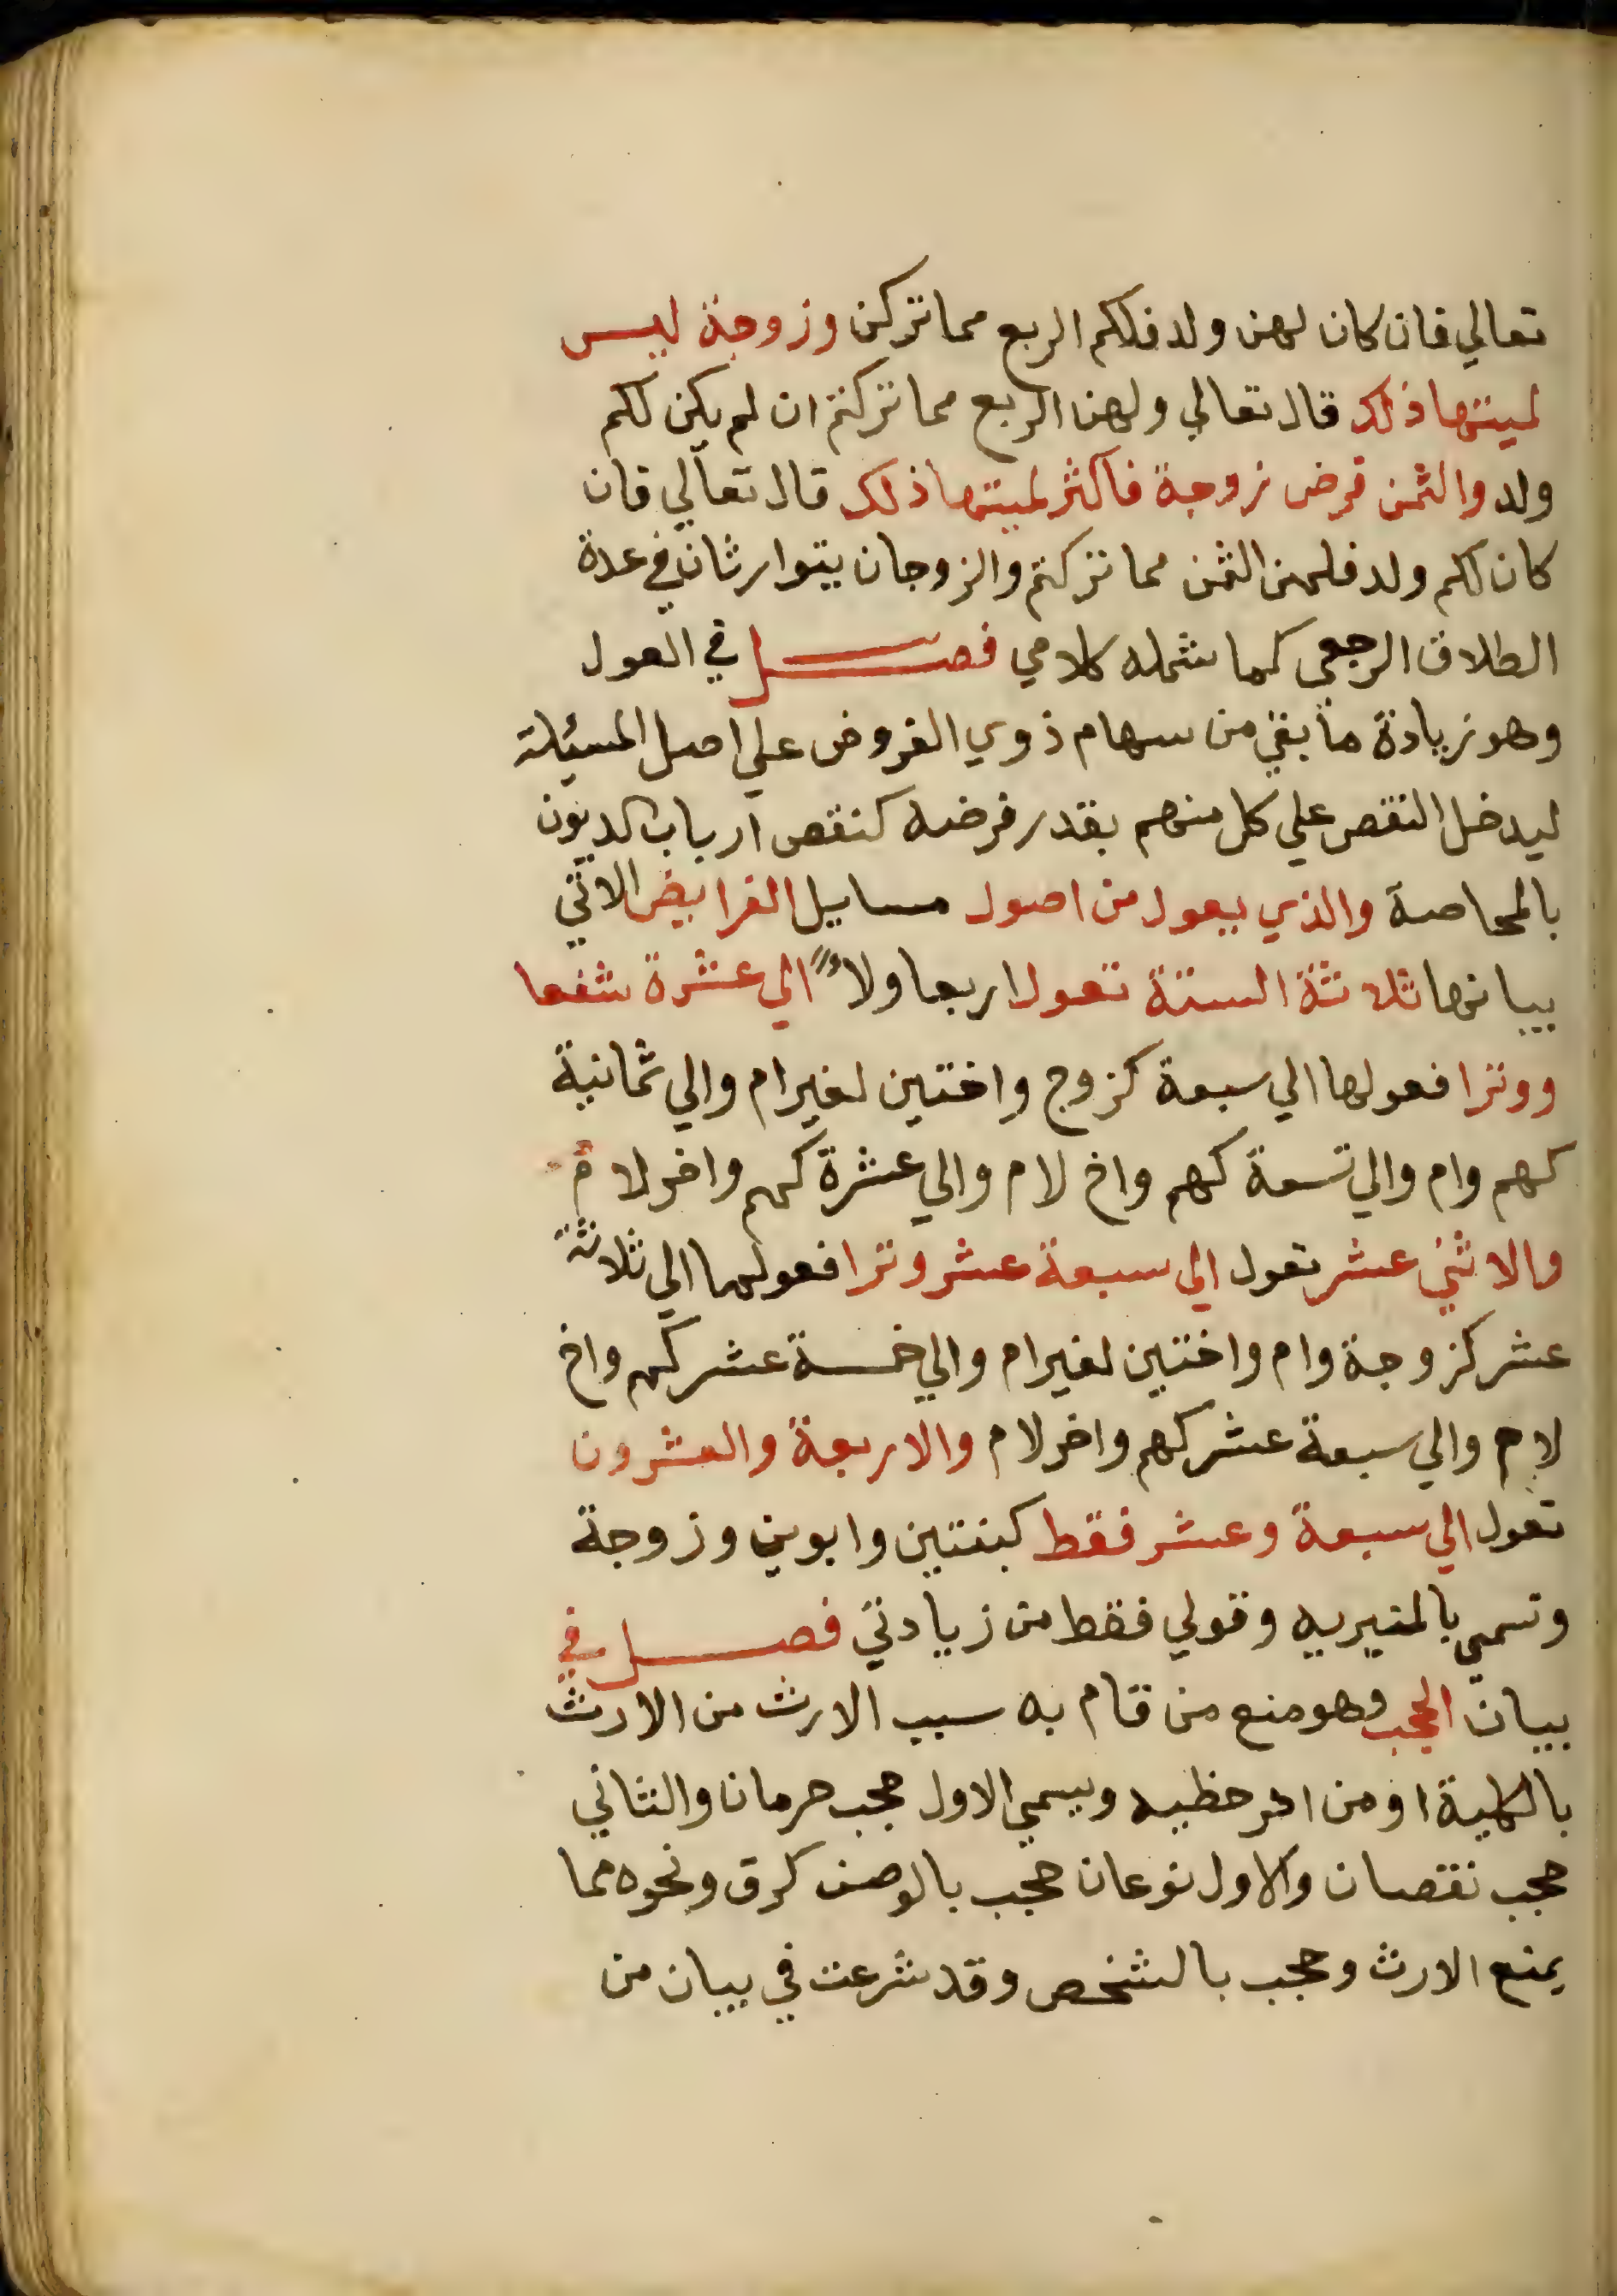 تعالي فان كان لهن ولد فلكم الربع مما تركن وزوجة ليس
لميتها ذلك قال تعالي ولهن الربع مما تركتم ان لم يكن لكم
ولد والثمن فرض زوجة فاكثر لميتها ذلك قال تعالي فان
كان لكم ولد فلهن الثمن مما تركتم والزوجان يتوارثان في عدة
الطلاق الرجعي كما شمله كلامي فصل في العول
وهو زيادة ما بقي من سهام ذوي الفروض علي اصل المسئلة
ليدخل النقص علي كل منهم بقدر فرضه كنقص ارباب الديون
بالمحاصة والذي يعول من اصول مسايل الفرايض الاتي
بيانها ثلاثة الستة تعول اربعا ولاءً الي عشرة شفعا
ووترا فعولها الي سبعة كزوج واختين لغير ام والي ثمانية
كهم وام والي تسعة كهم واخ لام والي عشرة كهم واخر لام
والاثني عشر تعول الي سبعة عشر وترا فعولها الي ثلاثة
عشر كزوجة وام واختين لغير ام والي خمسة عشر كهم واخ
لام والي سبعة عشر كهم واخر لام والاربعة والعشرون
تعول الي سبعة وعشر فقط كبنتين وابوين وزوجة
وتسمي بالمنيريه وقولي فقط من زيادتي فصل في
بيان الحجب وهو منع من قام به سبب الارث من الارث
بالكلية او من اوفر حظيه ويسمي الاول حجب حرمان والثاني
حجب نقصان والاول نوعان حجب بالوصف كرق ونحوه مما
يمنع الارث وحجب بالشخص وقد شرعت في بيان من